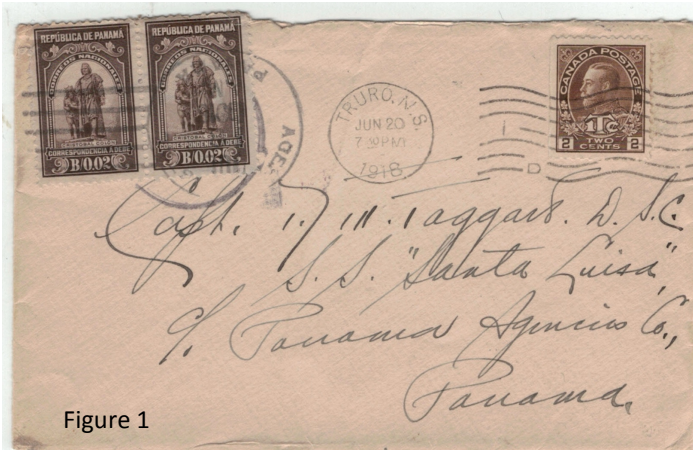 REPÚBLICA DE PANAMÁ
CORREOS NACIONALES
CRISTOBAL COLON
CORRESPONDENCIA A DEBE
B/0.02
REPÚBLICA DE PANAMÁ
CORREOS NACIONALES
CRISTOBAL COLON
CORRESPONDENCIA A DEBE
B/0.02
TRURO. N.S.
JUN 20
7 30 PM
1918
D
CANADA POSTAGE
1Tc
2 TWO CENTS 2
Capt. Taggart. D.S.C.
S.S. "Santa Luisa",
c/. Panama Agencies Co.,
Panama.
Figure 1